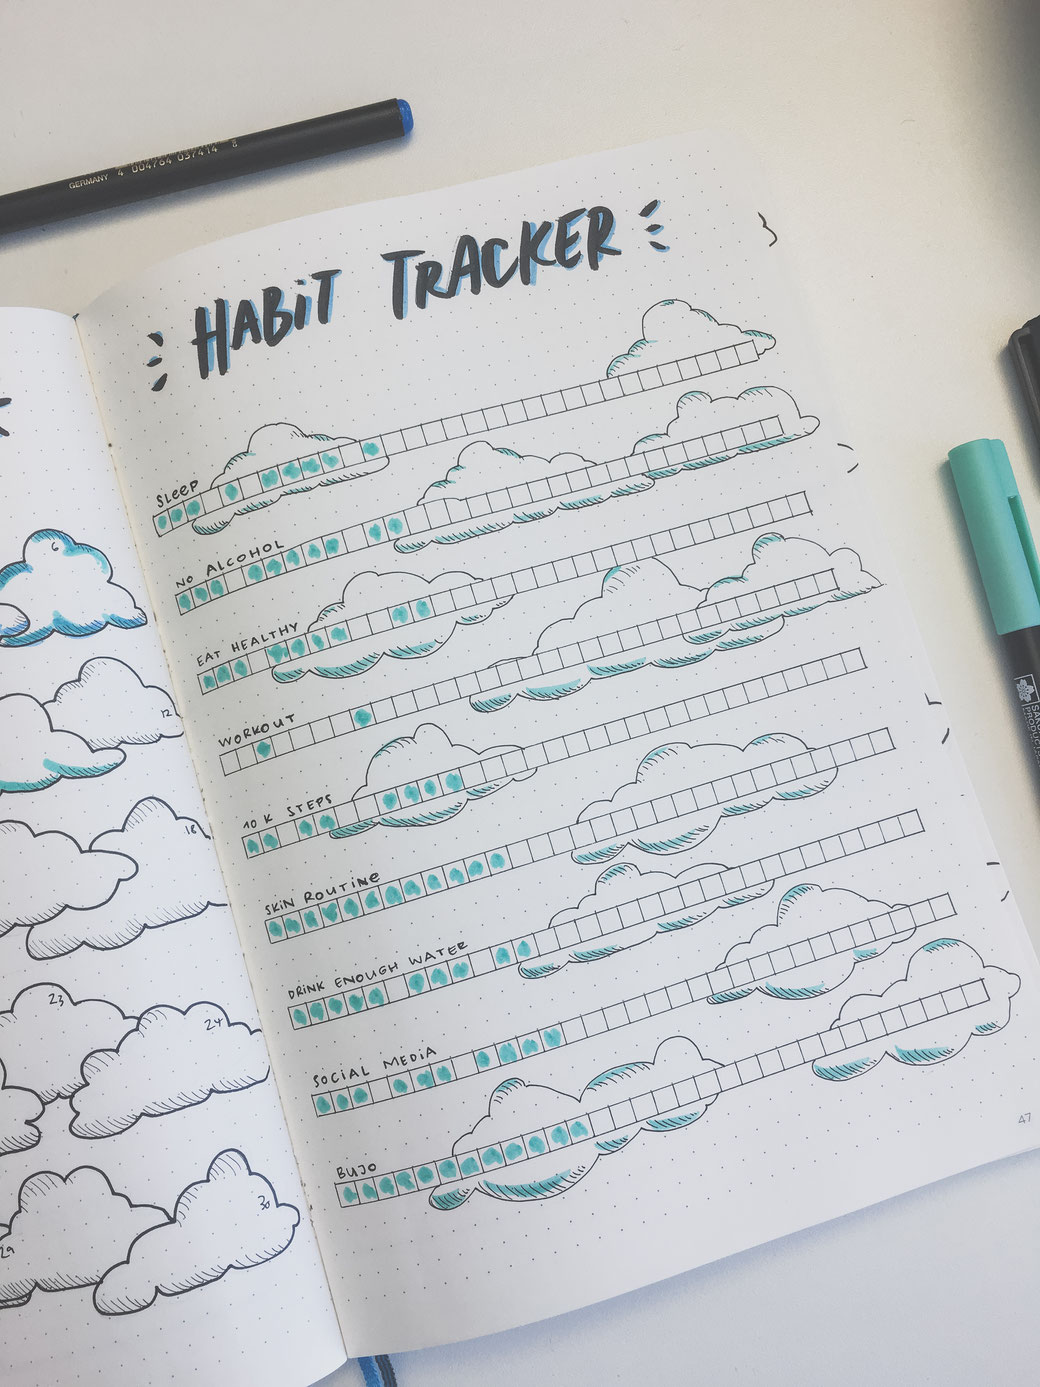 GERMANY 4 004764 037414 8
HABiT TRACKER
SLEEP
NO ALCOHOL
EAT HEALTHY
WORKOUT
10 K STEPS
SKIN ROUTINE
DRINK ENOUGH WATER
SOCIAL MEDIA
BUJO
47
6
12
18
23
24
29
30